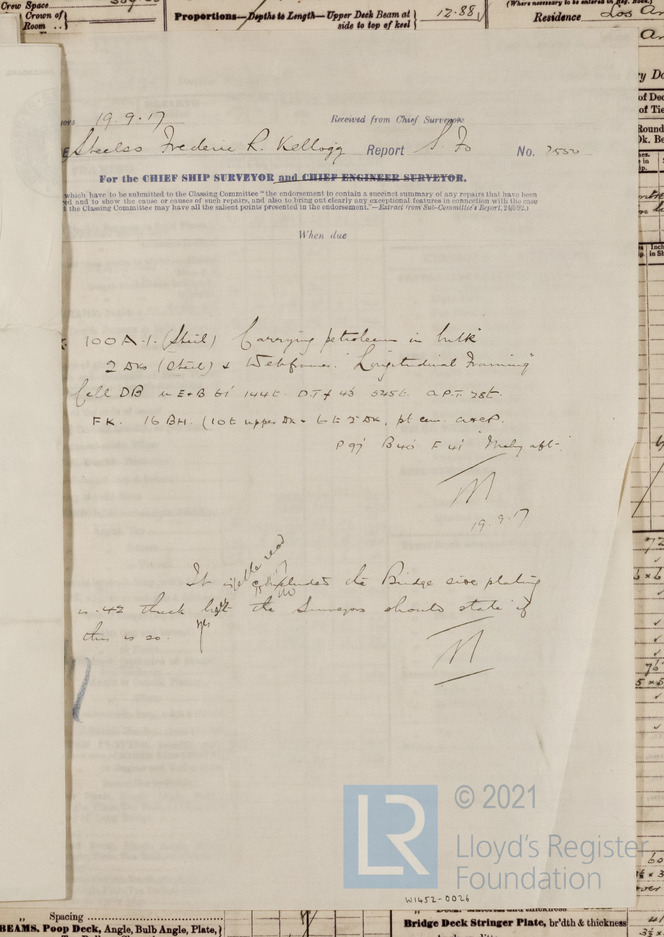 Crew Space
Crown of
Room
Proportions—Depths to Length—Upper Deck Beam at
side to top of keel
12.88
(Where necessary to be entered in Reg. Book.)
Residence Los
19.9.17
Received from Chief Surveyor
Frederic R. Kellogg Report S. Fo No. 2550
For the CHIEF SHIP SURVEYOR and CHIEF ENGINEER SURVEYOR.
which have to be submitted to the Classing Committee "the endorsement to contain a succinct summary of any repairs that have been
ed and to show the cause or causes of such repairs, and also to bring out clearly any exceptional features in connection with the case
t the Classing Committee may have all the salient points presented in the endorsement."—Extract from Sub-Committee's Report,
When due
100A.1. (Steel) Carrying petroleum in bulk
2 Dks (Steel) & Webframes. "Longitudinal Framing"
Cell DB u E&B 61' 144t. D.T.f 43' 525t. A.P.T. 78t.
FK. 16 BH. (10 to upper Dk - 6 to 2nd Dk, pt cem.
P 97' B 40' F 41' Mchy aft.
19.9.17
It is the Bridge side plating
is .42 thick but the Surveyors should state if
this is so.
yes
© 2021
LR
Lloyd's Register
Foundation
W1652-0026
" Spacing
BEAMS, Poop Deck, Angle, Bulb Angle, Plate,
Bridge Deck Stringer Plate, br'dth & thickness